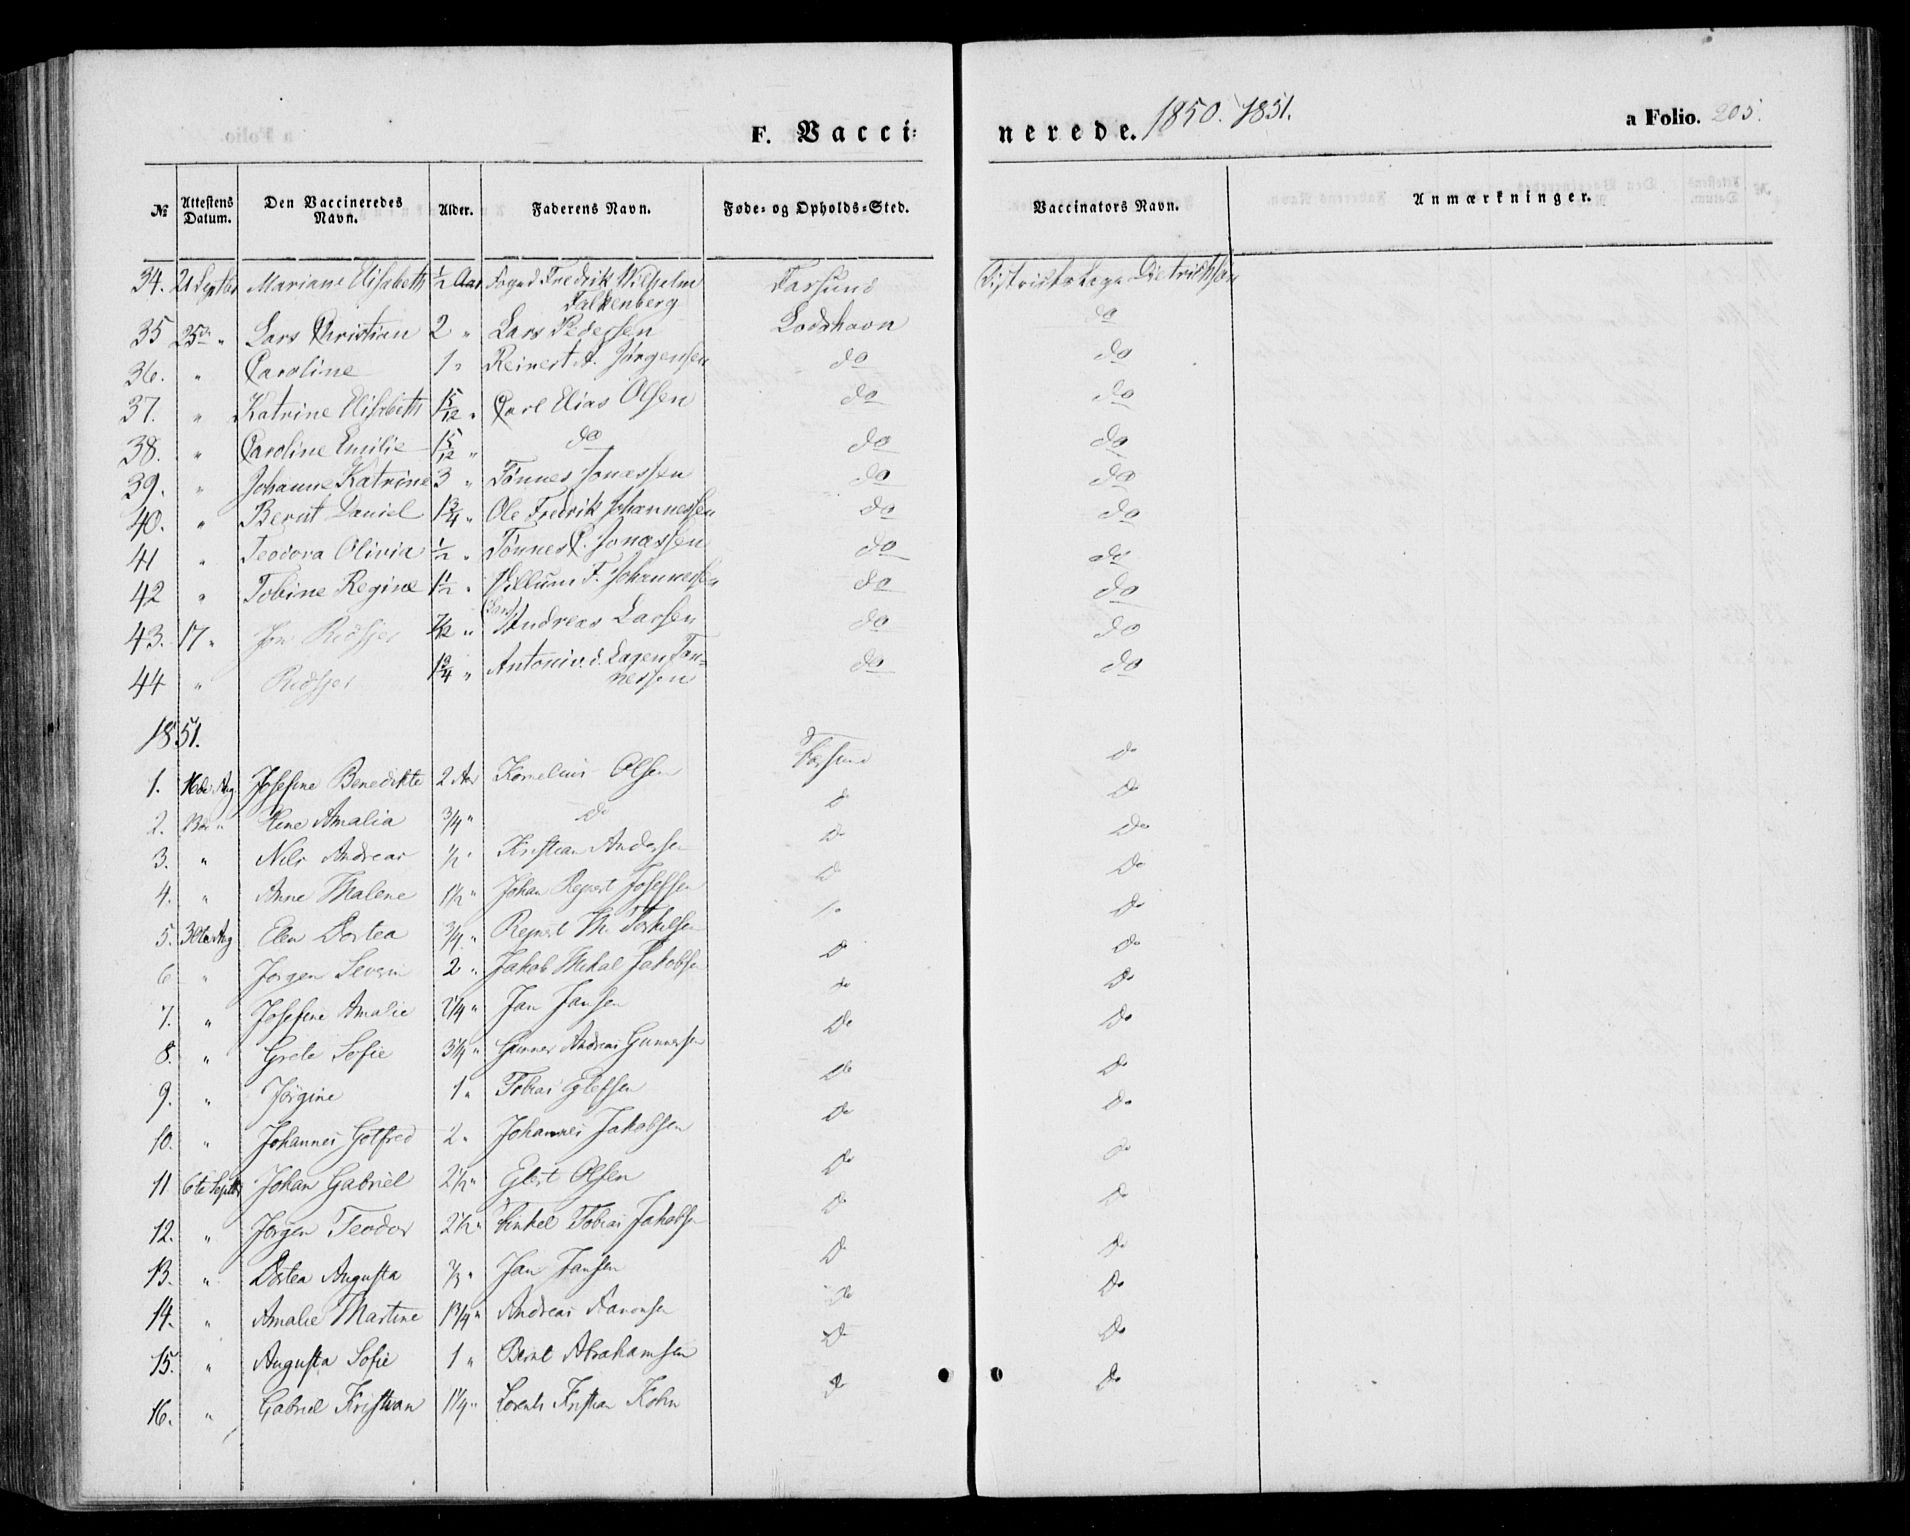 F. Vacci-
nerede. 1850. 1851.
a Folio. 205.
№ Attestens Datum. Den Vaccineredes Navn. Alder. Faderens Navn. Føde- og Opholds-Sted. Vaccinators Navn. Anmærkninger.
34. 21 Septbr Mariane Elisabeth ½ Aar Fredrik Wilhelm Farsund Dietrichson
Falkenberg
35 25de " Lars Christian 2 " Lars Pedersen Lodshavn do
36. " Caroline 1 " Reinert A. Jørgensen do do
37. " Katrine Elisabeth 1 5/12 " Carl Elias Olsen do do
38. " Caroline Emilie 1 5/12 " do do do
39. " Johanne Katrine 3 " Tønnes Jonassen do do
40. " Bernt Daniel 1 3/4 " Ole Fredrik Johannessen do do
41 " Teodora Olivia ½ " Tønnes C. Jonassen do do
42 " Tobine Regine 1½ " Villum F. Johannessen do do
43. 17 " 7/12 " Andreas Larsen do do
44 " 1 3/4 " do do
1851.
1. 16de Aug Josefine Benedikte 2 Aar Kornelius Olsen Farsund do
2. " Amalia 3/4 " Do Do Do
3. " Nils Andreas ½ " Kristian Andersen Do Do
4. " Anne Malene 1½ " Johan Reinert Josefsen Do Do
5. 30te Aug Elen Dortea 3/4 " Reinert M. Torkelsen Do Do
6 " Jørgen Severin 2 " Jakob Mikal Jakobsen Do Do
7. " Josefine Amalie 2¼ " Jan Jansen do Do
8. " Grete Sofie 3¼ " Gunner Andreas Gunnersen Do Do
9. " Jørgine 1 " Tobias Do Do
10. " Johannes Gotfred 2 " Johannes Jakobsen Do Do
11 6te Septbr Johan Gabriel 2½ " Olsen Do Do
12. " Jørgen Teodor 2½ " Tobias Jakobsen Do Do
13. " Dortea Augusta " Jan Jansen Do Do
14. " Amalie Martine 1 3/4 " Andreas Aanonsen Do Do
15. " Augusta Sofie 1 " Bernt Abrahamsen Do Do
16. " Gabriel Kristian 1¼ " Lorents Kristian Do Do